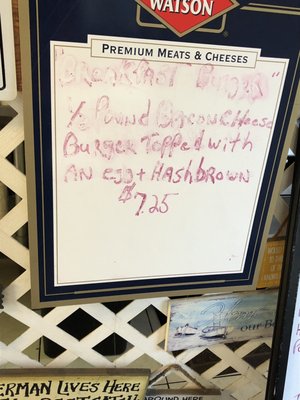 WATSON
PREMIUM MEATS & CHEESES
"BREAKFAST BURGER"
½ Pound BACON CHEESE
BURGER TOPPED WITH
AN EGG + HASHBROWN
$7.25
OUR B
ERMAN LIVES HERE
AROUND HERE